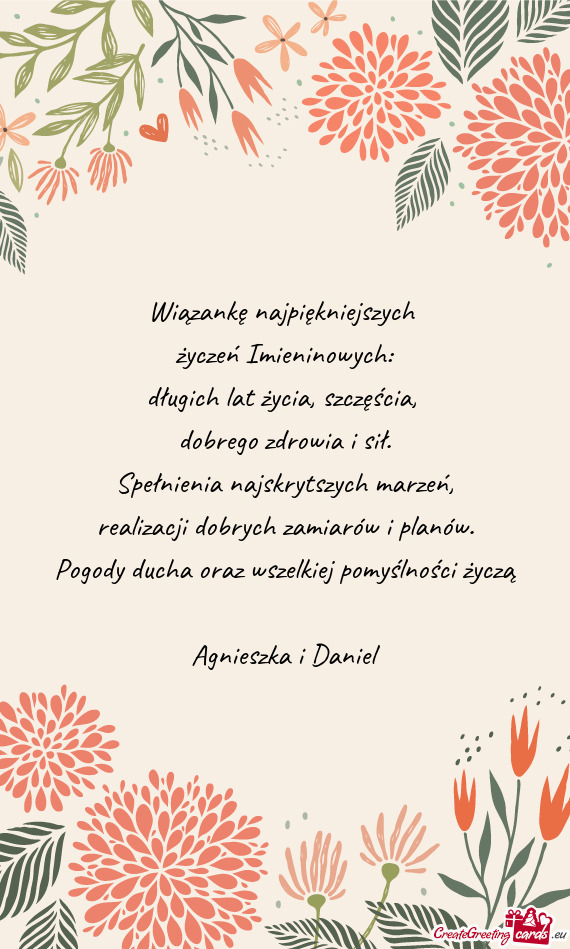 Wiązankę najpiękniejszych
życzeń Imieninowych:
długich lat życia, szczęścia,
dobrego zdrowia i sił.
Spełnienia najskrytszych marzeń,
realizacji dobrych zamiarów i planów.
Pogody ducha oraz wszelkiej pomyślności życzą
Agnieszka i Daniel
CreateGreeting cards .eu